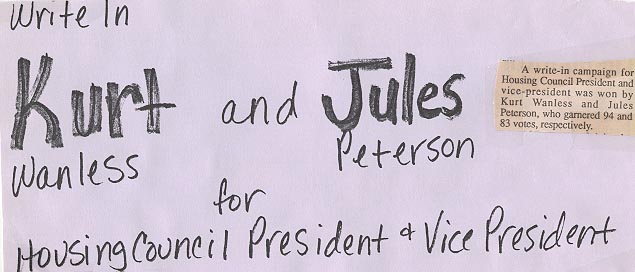 Write In
Kurt and Jules
Wanless Peterson
for
Housing Council President & Vice President
A write-in campaign for
Housing Council President and
vice-president was won by
Kurt Wanless and Jules
Peterson, who garnered 94 and
83 votes, respectively.